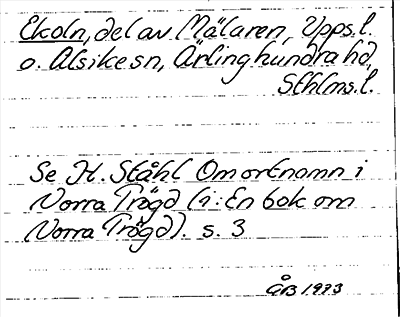 Ekoln, del av Mälaren, Upps. l.
o. Alsike sn, Ärlinghundra hd,
Sthlms. l.
Se H. Ståhl Om ortnamn i
Norra Trögd (i: En bok om
Norra Trögd). s. 3
ÅB 1993